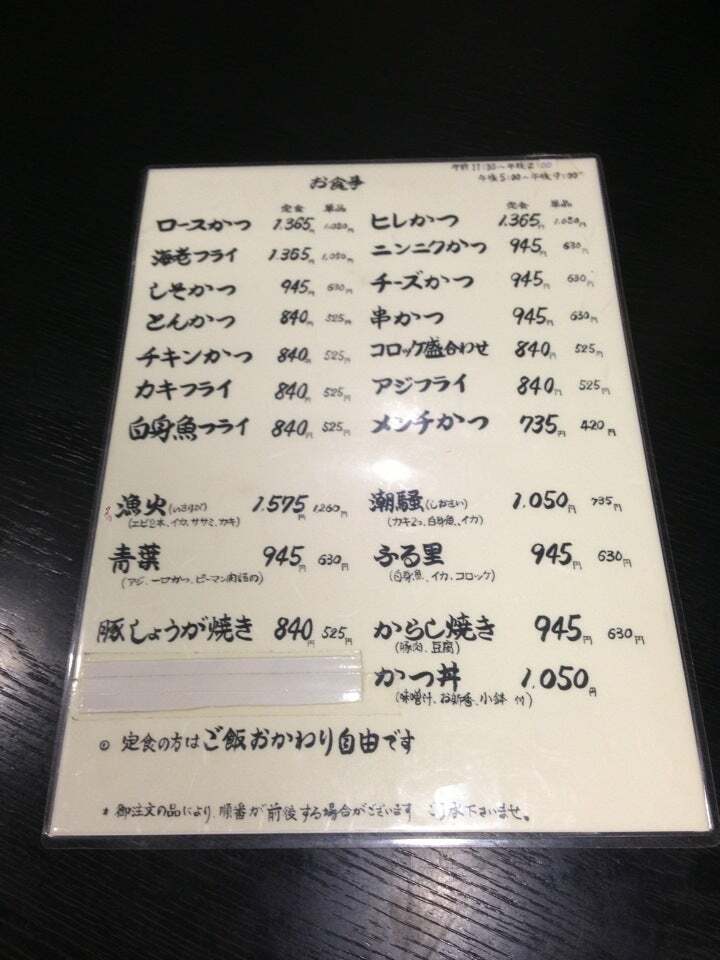 午前11:30〜午後2:00
お食事
午後5:00〜午後9:00
定食 単品 定食 単品
ロースかつ 1.365円 1.050円 ヒレかつ 1.365円 1.050円
海老フライ 1.365円 1.050円 ニンニクかつ 945円 630円
しそかつ 945円 630円 チーズかつ 945円 630円
とんかつ 840円 525円 串かつ 945円 630円
チキンかつ 840円 525円 コロッケ盛合わせ 840円 525円
カキフライ 840円 525円 アジフライ 840円 525円
白身魚フライ 840円 525円 メンチかつ 735円 420円
漁火(いさりび) 1.575円 1.260円 潮騒(しおさい) 1.050円 735円
(エビ2本、イカ、ササミ、カキ) (カキ2コ、白身魚、イカ)
青葉 945円 630円 ふる里 945円 630円
(アジ、一口かつ、ピーマン肉詰め) (白身魚、イカ、コロッケ)
豚しょうが焼き 840円 525円 からし焼き 945円 630円
(豚肉、豆腐)
かつ丼 1.050円
(味噌汁、お新香、小鉢 付)
◎ 定食の方はご飯おかわり自由です
* 御注文の品により、順番が前後する場合がございます ご了承下さいませ。